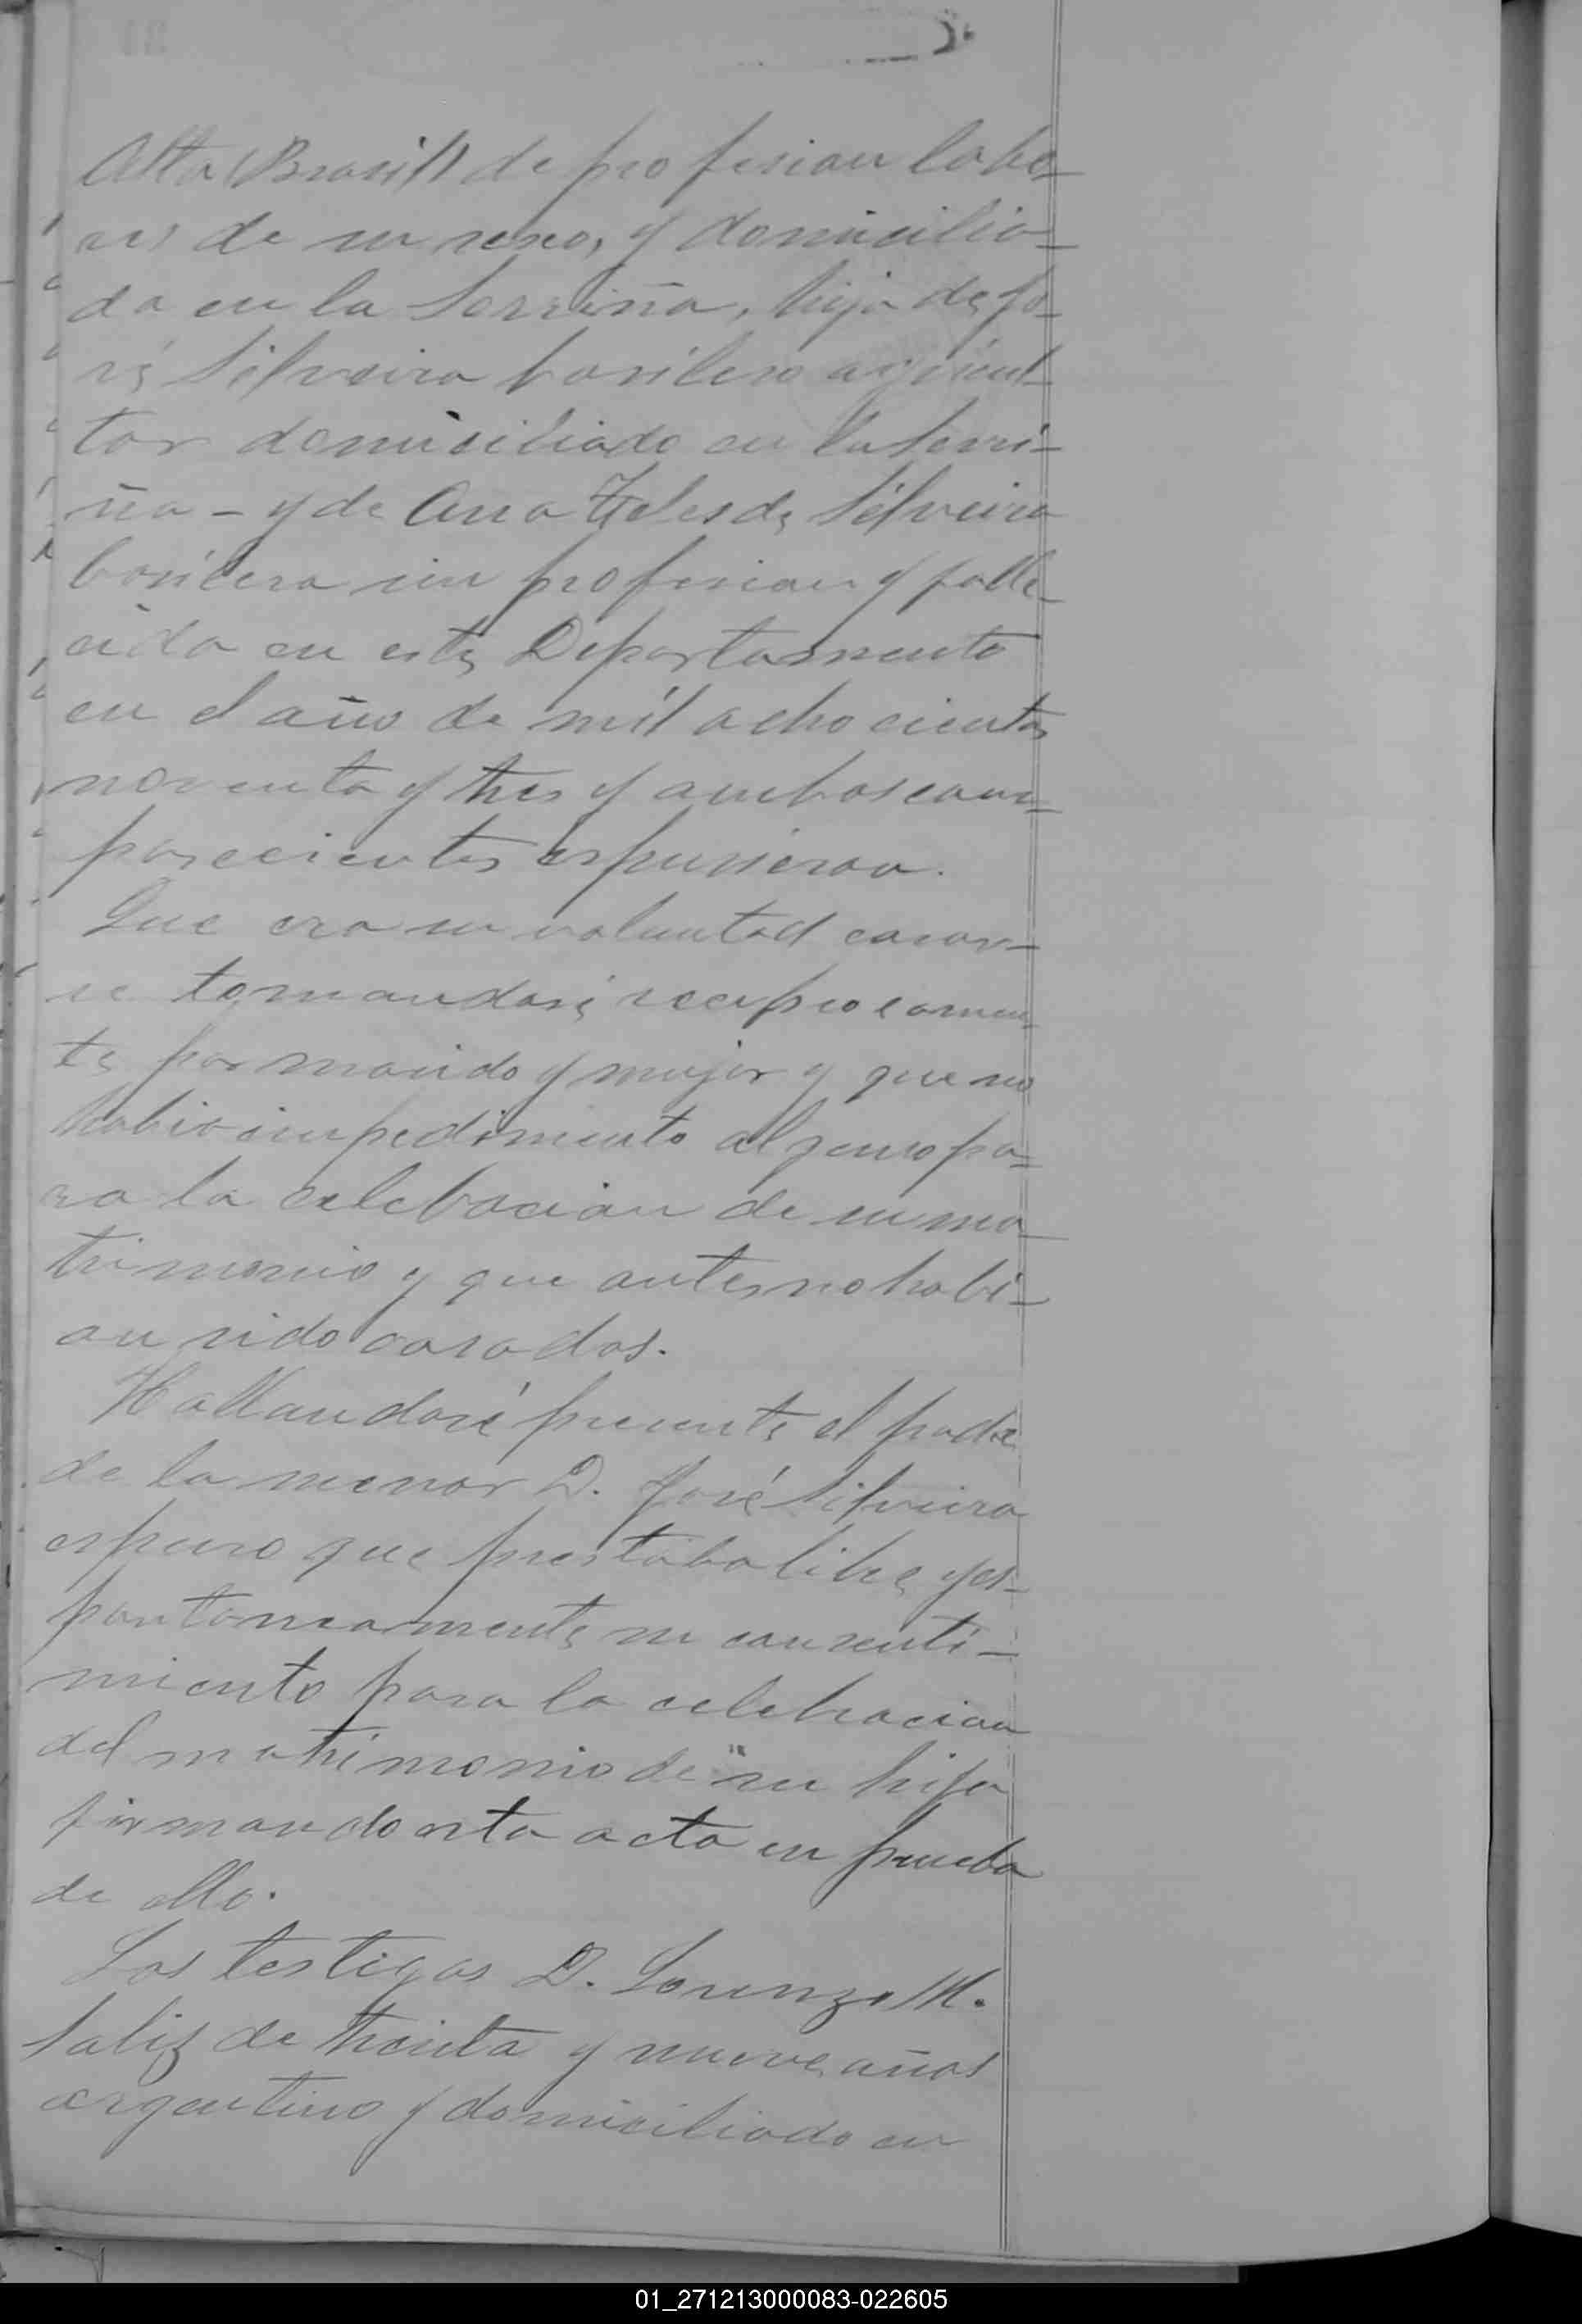 Alta (Brasil) de profesion labo-
res de su sexo, y domicilia-
da en la Serriña, hija de Jo-
sé Silveira brasilero agricul-
tor domiciliado en la Serri-
ña - y de Ana Teles de Silveira
brasilera sin profesion y falle-
cida en este Departamento
en el año de mil ochocientos
noventa y tres y ambos com-
parecientes espusieron.
Que era su voluntad casar-
se tomandose reciprocamen-
te por marido y mujer y que no
habia impedimento alguno pa-
ra la celebracion de su ma-
trimonio y que antes no habi-
an sido casados.
Hallandose presente el padre
de la menor D. José Silveira
espuso que prestaba libre y es-
pontaneamente su consenti-
miento para la celebracion
del matrimonio de su hija
firmando esta acta en prueba
de ello.
Los testigos D. Lorenzo M.
de treinta y nueve años
argentino y domiciliado en
01_271213000083-022605